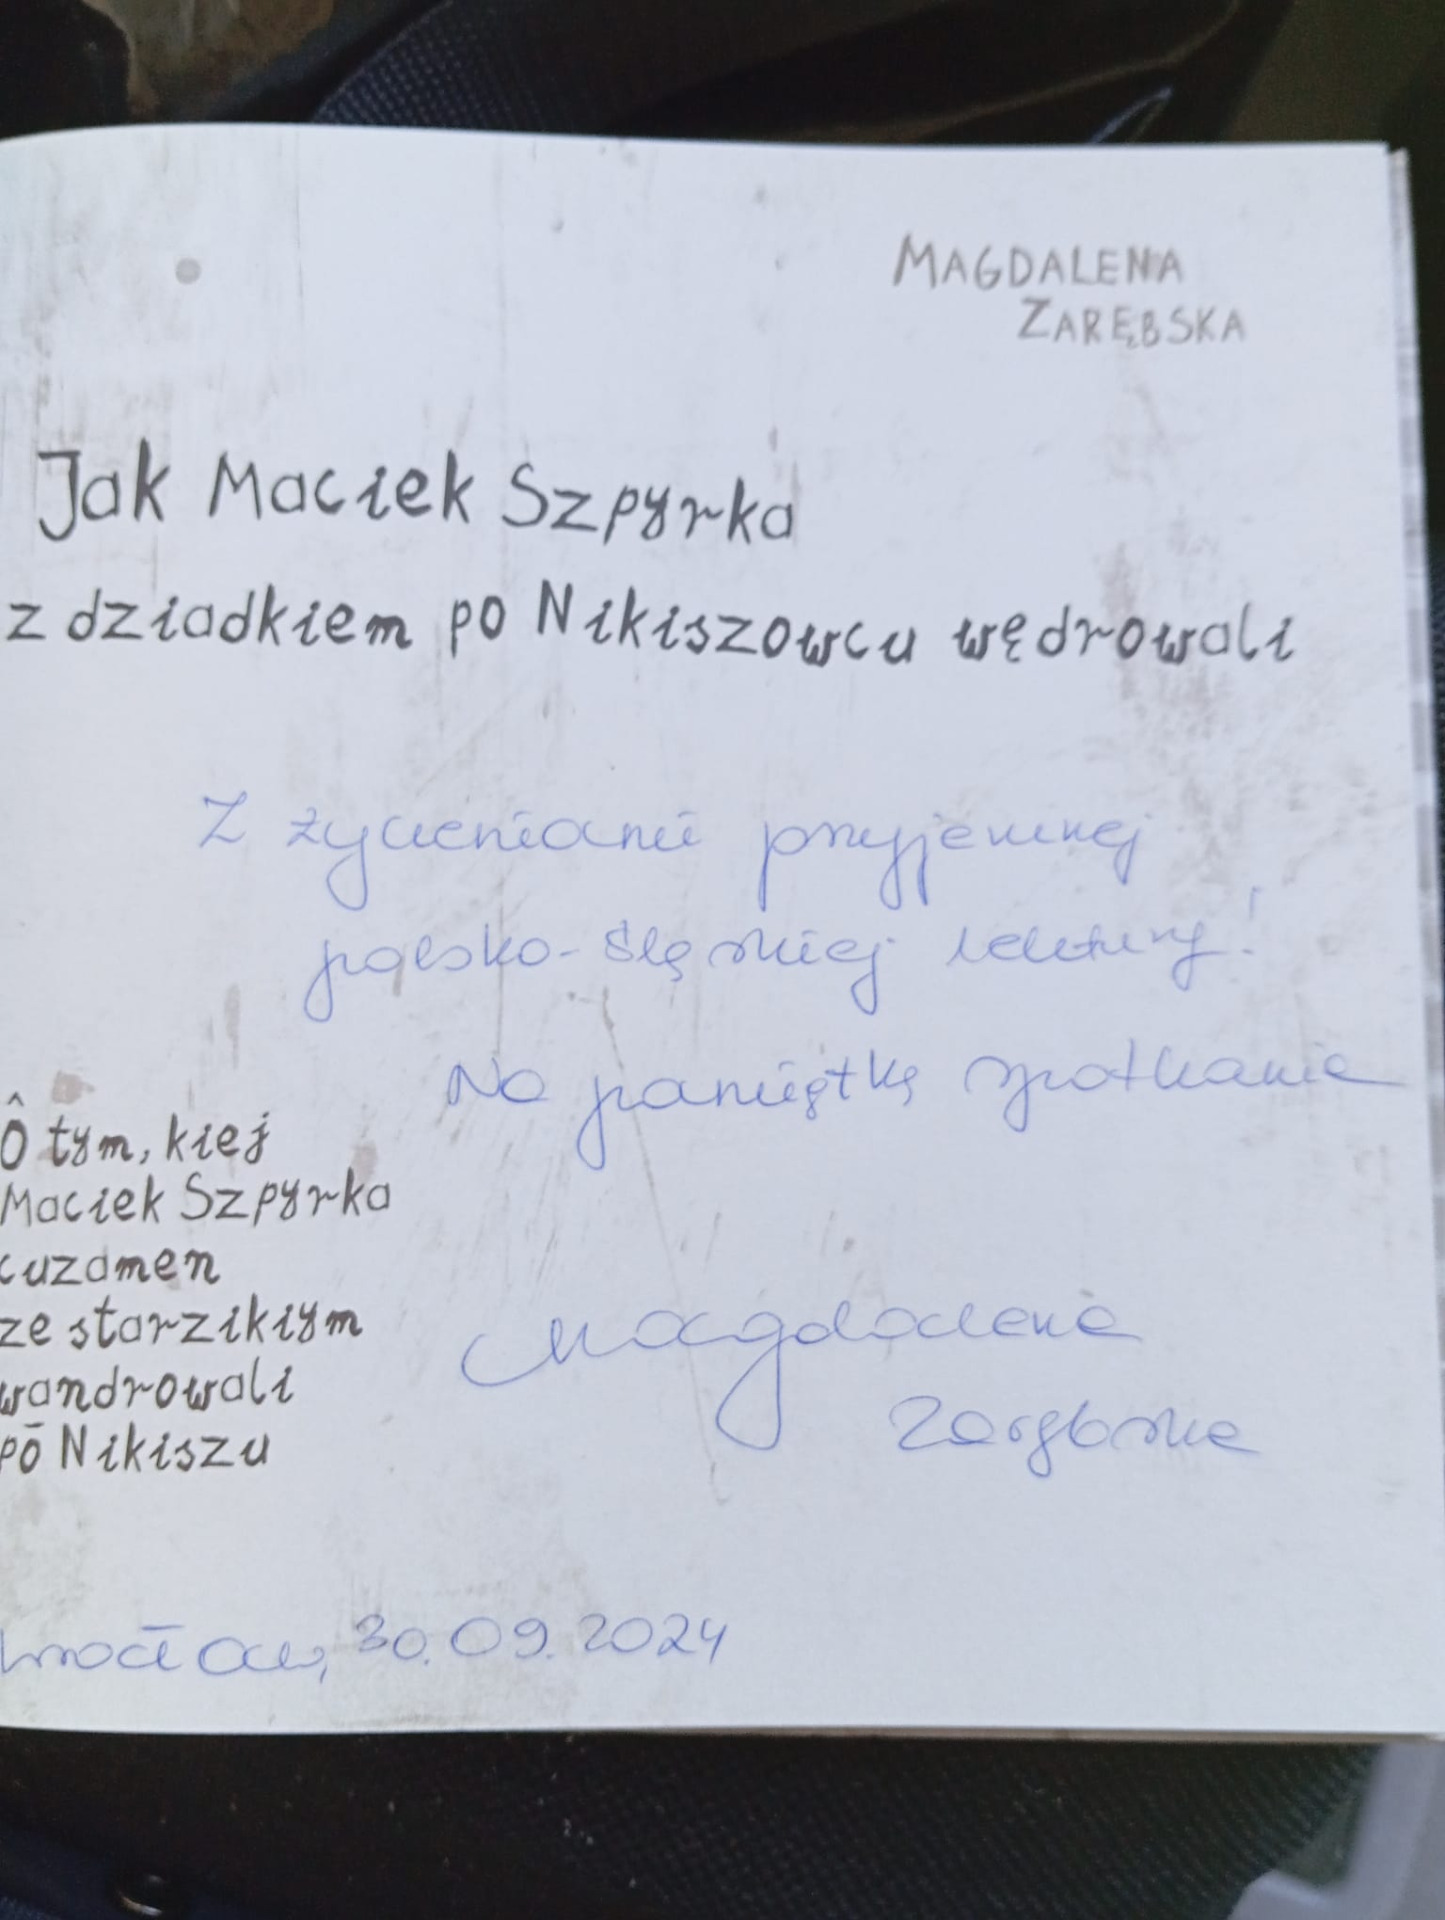 MAGDALENA
ZARĘBSKA
Jak Maciek Szpyrka
z dziadkiem po Nikiszowcu wędrowali
Z życzeniami przyjemnej
polsko-śląskiej lektury!
Na pamiątkę spotkania
Ô tym, kiej
Maciek Szpyrka
cuzamen
ze starzikiym
wandrowali
pō Nikiszu
Magdalena
Zarębska
Wrocław, 30.09.2024